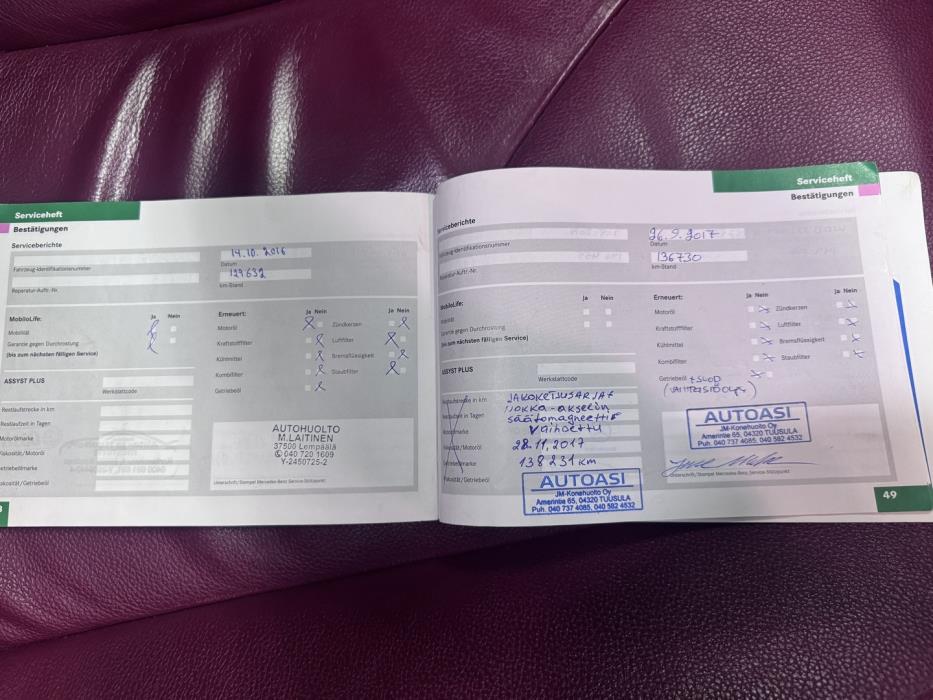 Serviceheft
Bestätigungen
Serviceberichte
14.10.2016
Fahrzeug-Identifikationsnummer
Datum
129632
Reparatur-Auftr.-Nr.
km-Stand
MobiloLife:
Ja Nein
Mobilität
Garantie gegen Durchrostung
(bis zum nächsten fälligen Service)
Erneuert:
Ja Nein
Ja Nein
Motoröl
Zündkerzen
Kraftstofffilter
Luftfilter
Kühlmittel
Bremsflüssigkeit
Kombifilter
Staubfilter
Getriebeöl
ASSYST PLUS
Werkstattcode
Restlaufstrecke in km
Restlaufzeit in Tagen
Motorölmarke
Viskosität/Motoröl
Getriebeölmarke
Viskosität/Getriebeöl
AUTOHUOLTO
M.LAITINEN
37500 Lempäälä
040 720 1609
Y-2450725-2
Unterschrift/Stempel Mercedes-Benz Service-Stützpunkt
Serviceheft
Bestätigungen
Serviceberichte
26.9.2017
Fahrzeug-Identifikationsnummer
Datum
136730
Reparatur-Auftr.-Nr.
km-Stand
MobiloLife:
Ja Nein
Mobilität
Garantie gegen Durchrostung
(bis zum nächsten fälligen Service)
Erneuert:
Ja Nein
Ja Nein
Motoröl
Zündkerzen
Kraftstofffilter
Luftfilter
Kühlmittel
Bremsflüssigkeit
Kombifilter
Staubfilter
Getriebeöl
ASSYST PLUS
Werkstattcode
Restlaufstrecke in km
Restlaufzeit in Tagen
Motorölmarke
Viskosität/Motoröl
Getriebeölmarke
Viskosität/Getriebeöl
JAKOKETJUSARJA &
NOKKA-AKSELIN
säätömagneettiF
Vaihdettu
28.11.2017
138231 km
AUTOASI
JM-Konehuolto Oy
Amerintie 65, 04320 TUUSULA
Puh. 040 737 4085, 040 592 4532
AUTOASI
JM-Konehuolto Oy
Amerintie 65, 04320 TUUSULA
Puh. 040 737 4085, 040 592 4532
Unterschrift/Stempel Mercedes-Benz Service-Stützpunkt
49